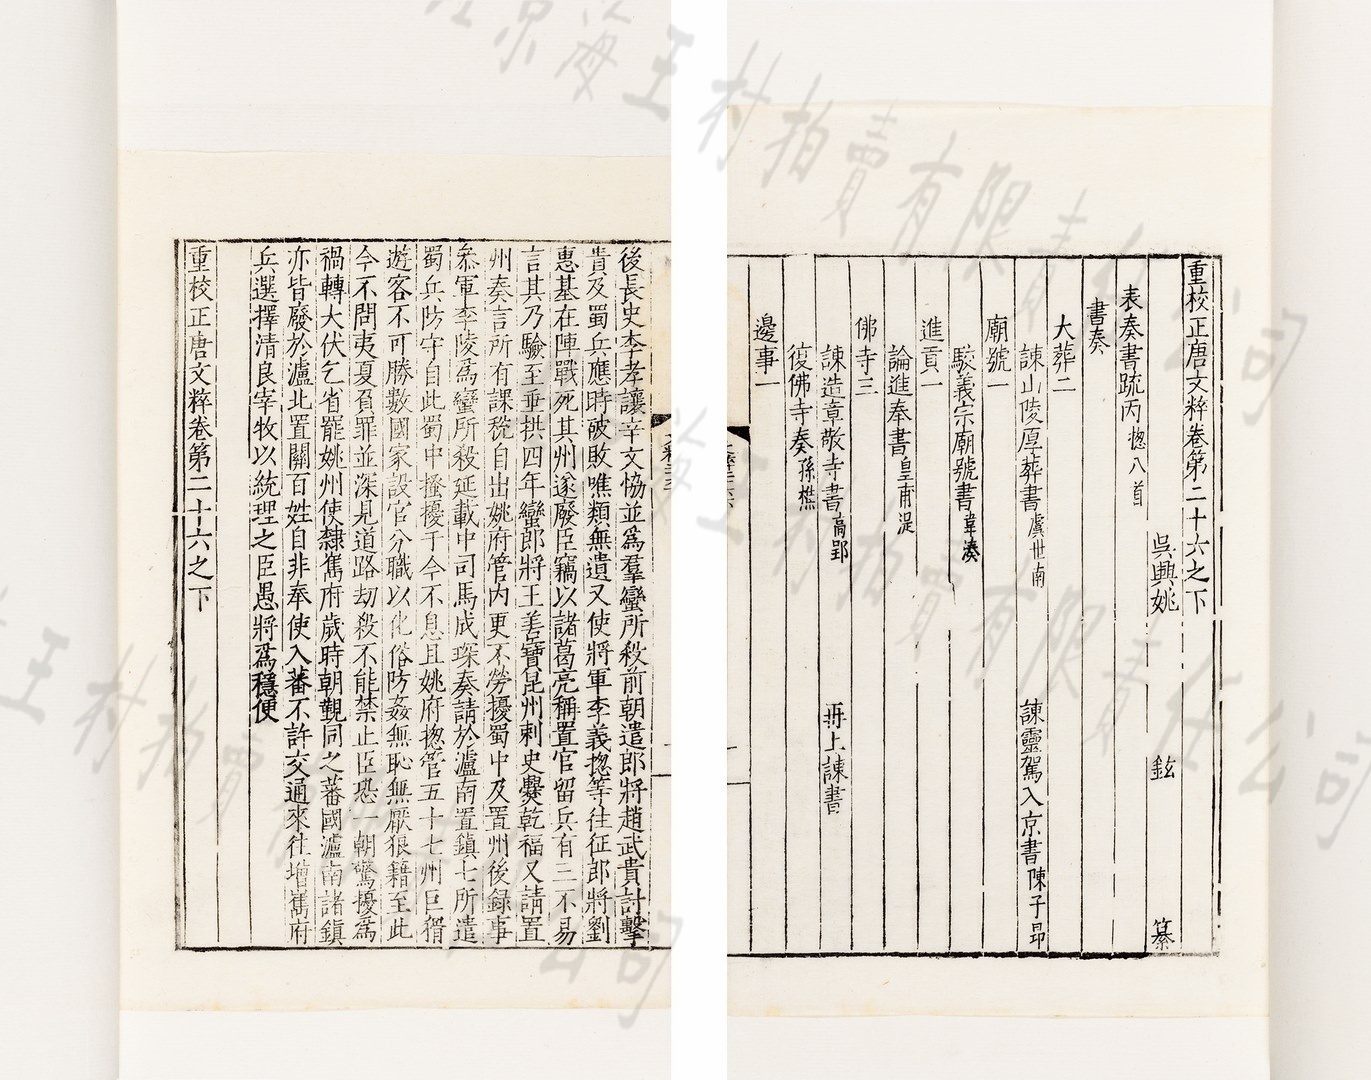 重校正唐文粹卷第二十六之下
吳興姚 鉉 纂
表奏書疏丙 揔八首
書奏
大葬二
諫山陵厚葬書 虞世南 諫靈駕入京書 陳子昂
廟號一
駮義宗廟號書 韋湊
進貢一
論進奉書 皇甫湜
佛寺三
諫造章敬寺書 高郢 再上諫書
復佛寺奏 孫樵
邊事一
後長史李孝讓辛文恊並爲羣蠻所殺前朝遣郎將趙武貴討擊
貴及蜀兵應時破敗噍類無遺又使將軍李義揔等往征郎將劉
惠基在陣戰死其州遂廢臣竊以諸葛亮稱置官留兵有三不易
言其乃驗至垂拱四年蠻郎將王善寶昆州刺史爨乾福又請置
州奏言所有課稅自出姚府管內更不勞擾蜀中及置州後録事
叅軍李陵爲蠻所殺延載中司馬成琛奏請於瀘南置鎮七所遣
蜀兵防守自此蜀中搔擾于今不息且姚府揔管五十七州巨猾
遊客不可勝數國家設官分職以化俗防姦無恥無厭狼籍至此
今不問夷夏負罪並深見道路劫殺不能禁止臣恐一朝驚擾爲
禍轉大伏乞省罷姚州使隸巂府歲時朝覲同之蕃國瀘南諸鎮
亦皆廢於瀘北置關百姓自非奉使入蕃不許交通來往增巂府
兵選擇清良宰牧以統理之臣愚將爲穩便
重校正唐文粹卷第二十六之下